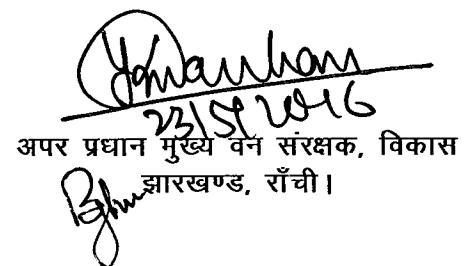 23/5/2016
अपर प्रधान मुख्य वन संरक्षक, विकास
झारखण्ड, राँची।